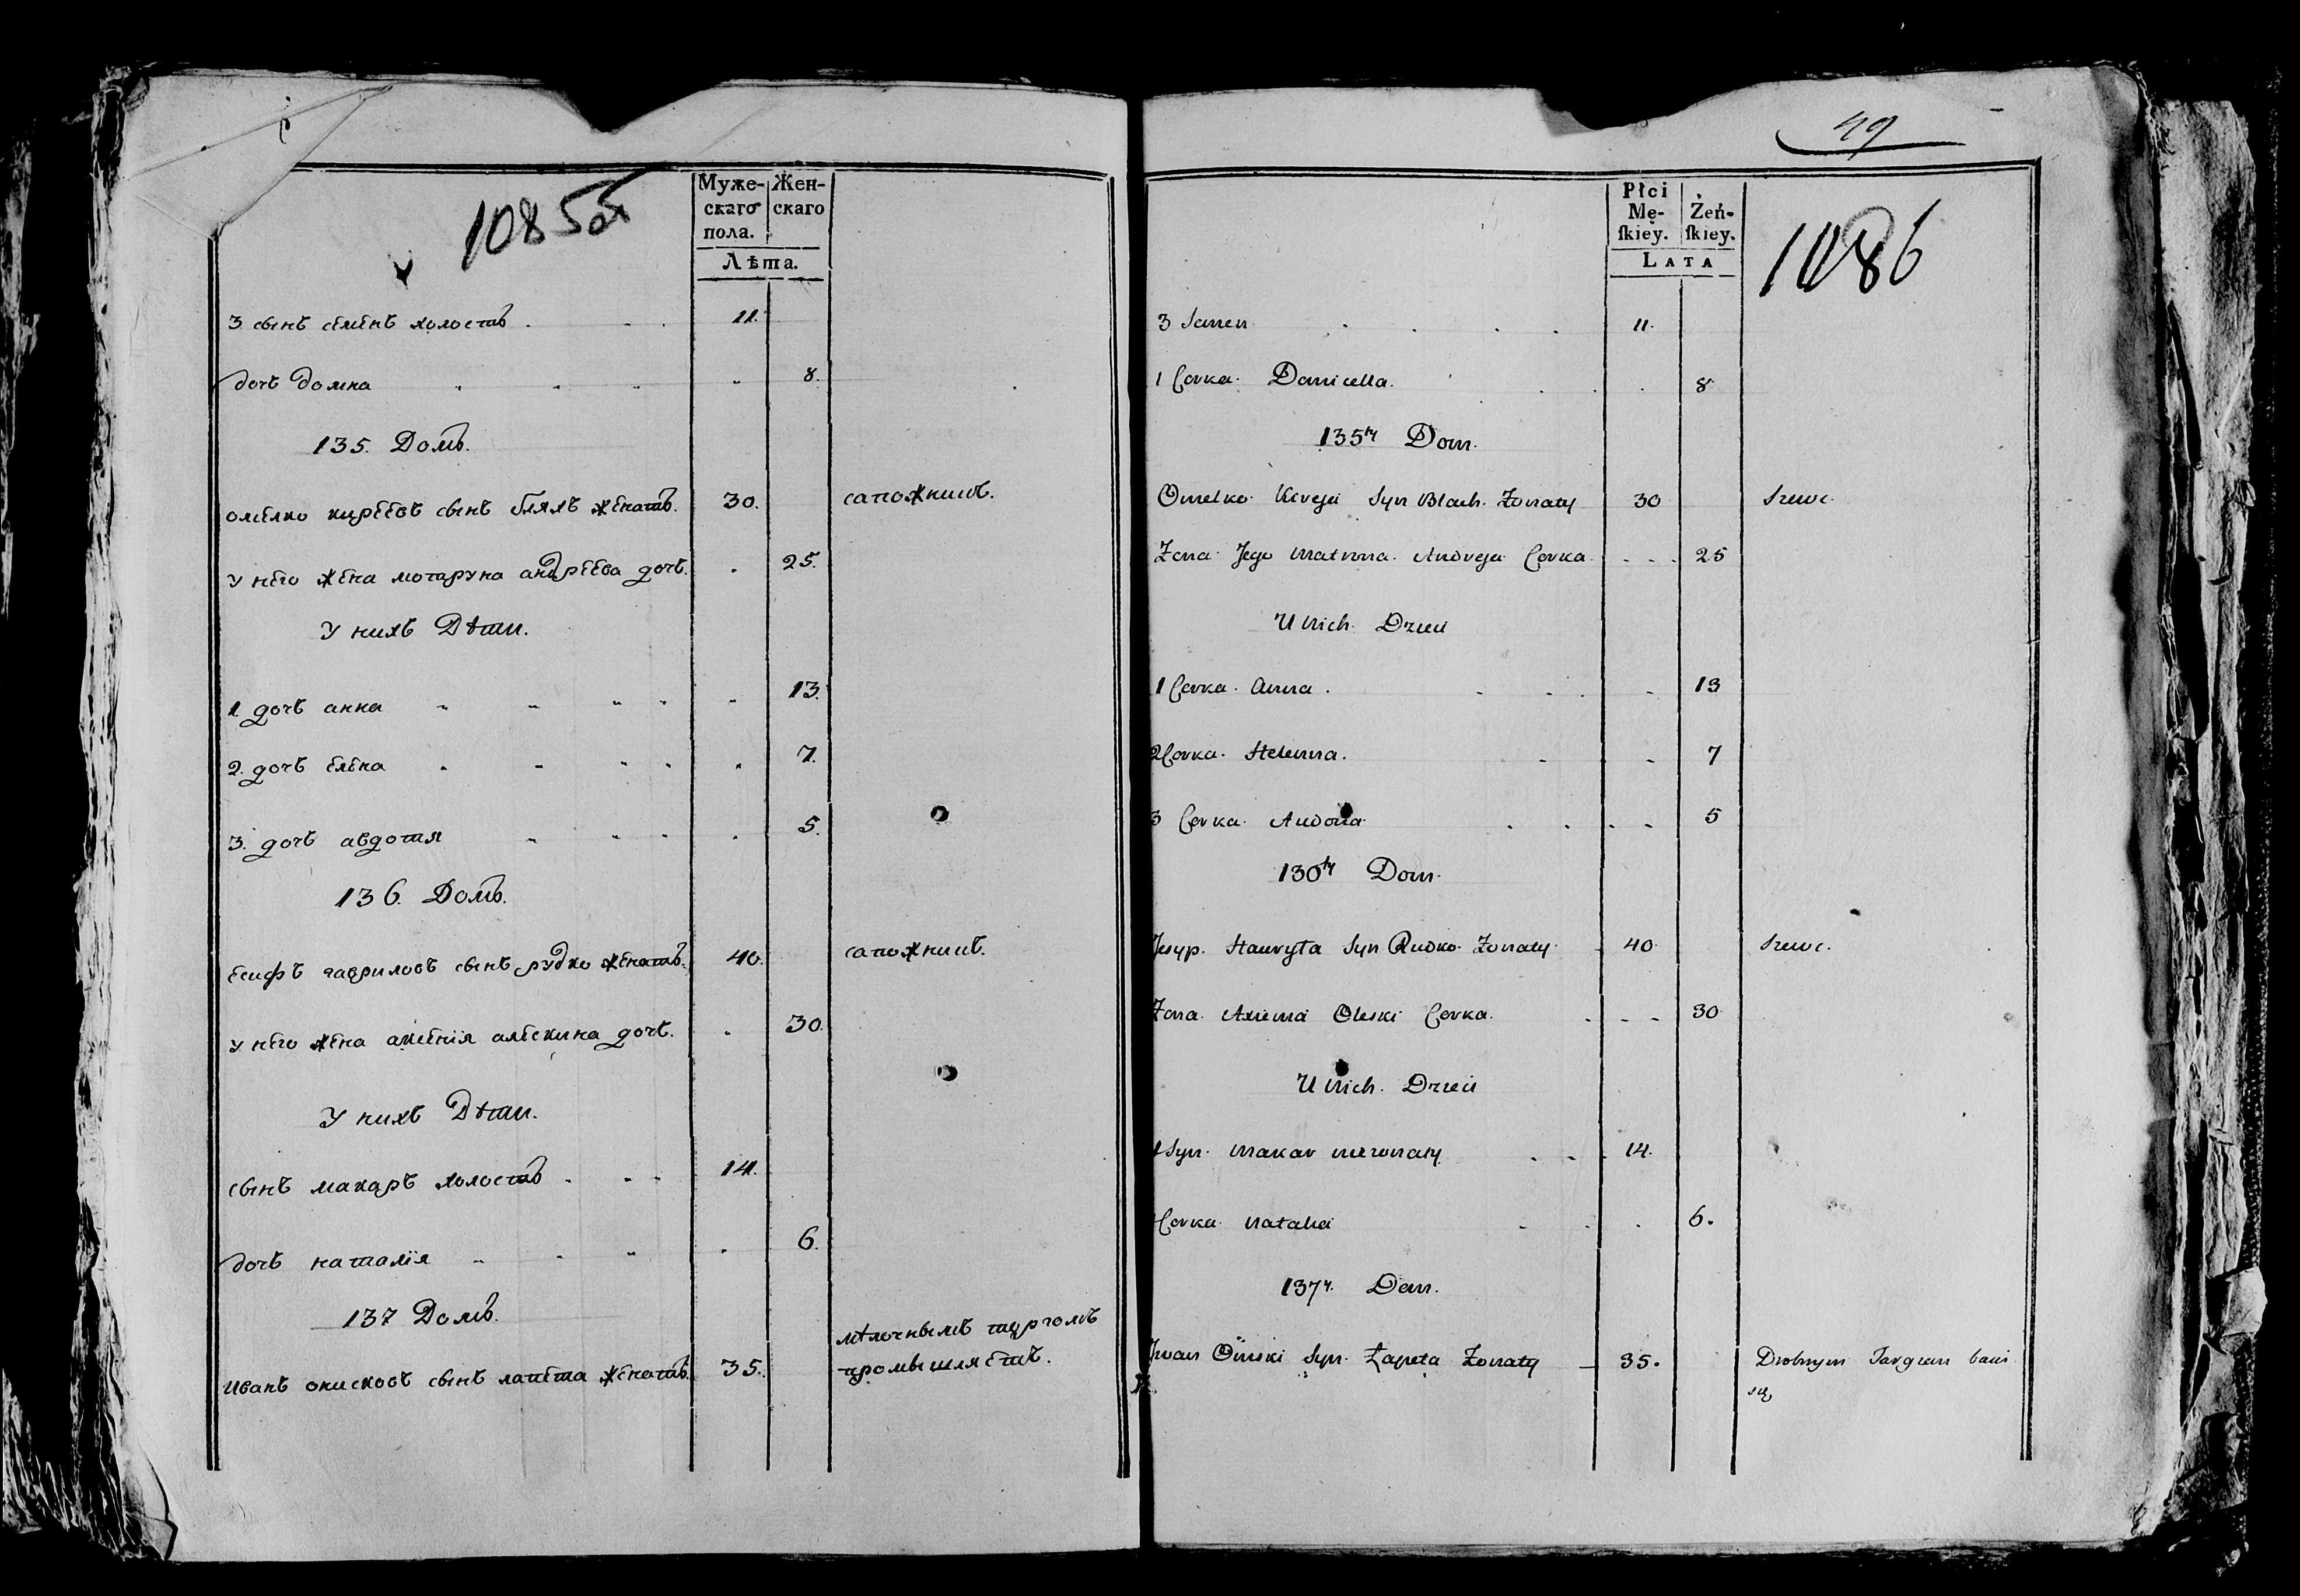 1085об
Муже-
скаго
пола.
Жен-
скаго
Лѣта.
3 сынъ семенъ холостъ 11.
дочь домна 8.
135. Домъ.
омелко киреевъ сынъ бляхъ женатъ. 30. сапожникъ.
у него жена мотаруна андреева дочь. 25.
У нихъ Дѣти.
1 дочь анна 13.
2. дочь елена 7.
3. дочь авдотя 5.
136. Домъ.
есифъ гавриловъ сынъ рудко женатъ. 40. сапожникъ.
у него жена аксенія алескина дочь. 30.
У нихъ Дѣти.
сынъ макаръ холостъ 14.
дочь наталія 6.
137 Домъ.
мѣлочнымъ торгомъ
иванъ онисковъ сынъ лапета женатъ. 35. промышляетъ.
49
Płci
Mę-
ſkiey.
Żeń-
ſkiey.
LATA
1086
3 Semen 11.
1 Corka Domicella. 8
135ty Dom.
Omelko Kireja Syn Blach. Zonaty 30 Szewc.
Zona Jego Matrona Andreja Corka 25
U Nich Dzieci
1 Corka Anna. 13
2 Corka Helenna. 7
3 Corka Audotia 5
130ty Dom.
Jesyp. Hawryła Syn Rudko Zonaty 40 Szewc.
Zona Axienia Oleski Corka. 30
U Nich Dzieci
1 Syn Makar niezonaty 14.
Corka Natalia 6.
137y. Dom.
Jwan Oniski Syn Łapeta Zonaty 35. Drobnym Targiem bawi
się